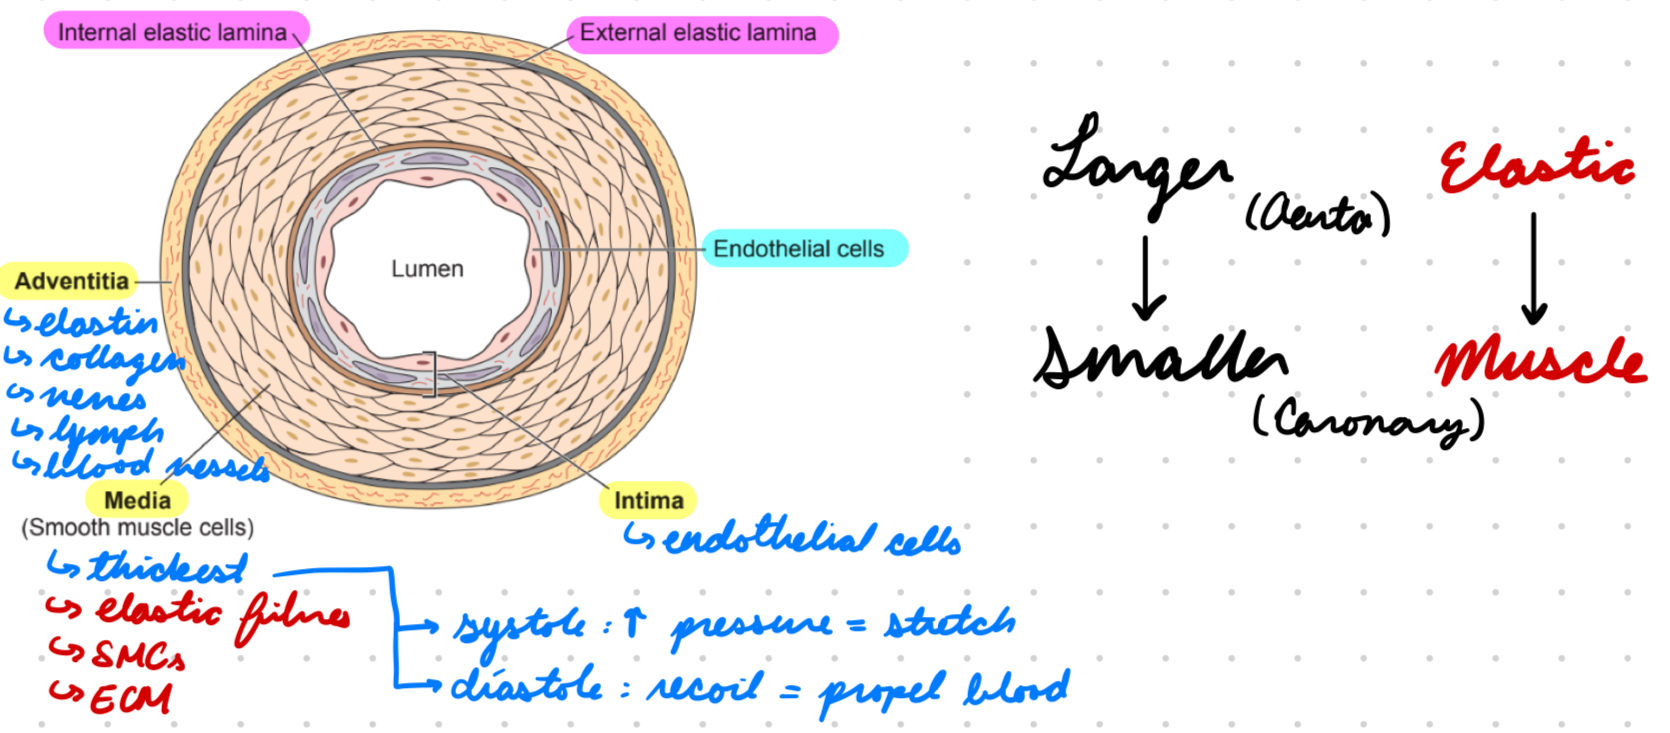 Internal elastic lamina
External elastic lamina
Endothelial cells
Lumen
Adventitia
↳ elastin
↳ collagen
↳ nerves
↳ lymph
↳ blood vessels
Media
(Smooth muscle cells)
↳ thickest
↳ elastic fibres
↳ SMCs
↳ ECM
Intima
↳ endothelial cells
→ systole : ↑ pressure = stretch
→ diastole : recoil = propel blood
Larger
(Aorta)
↓
Smaller
(Coronary)
Elastic
↓
Muscle